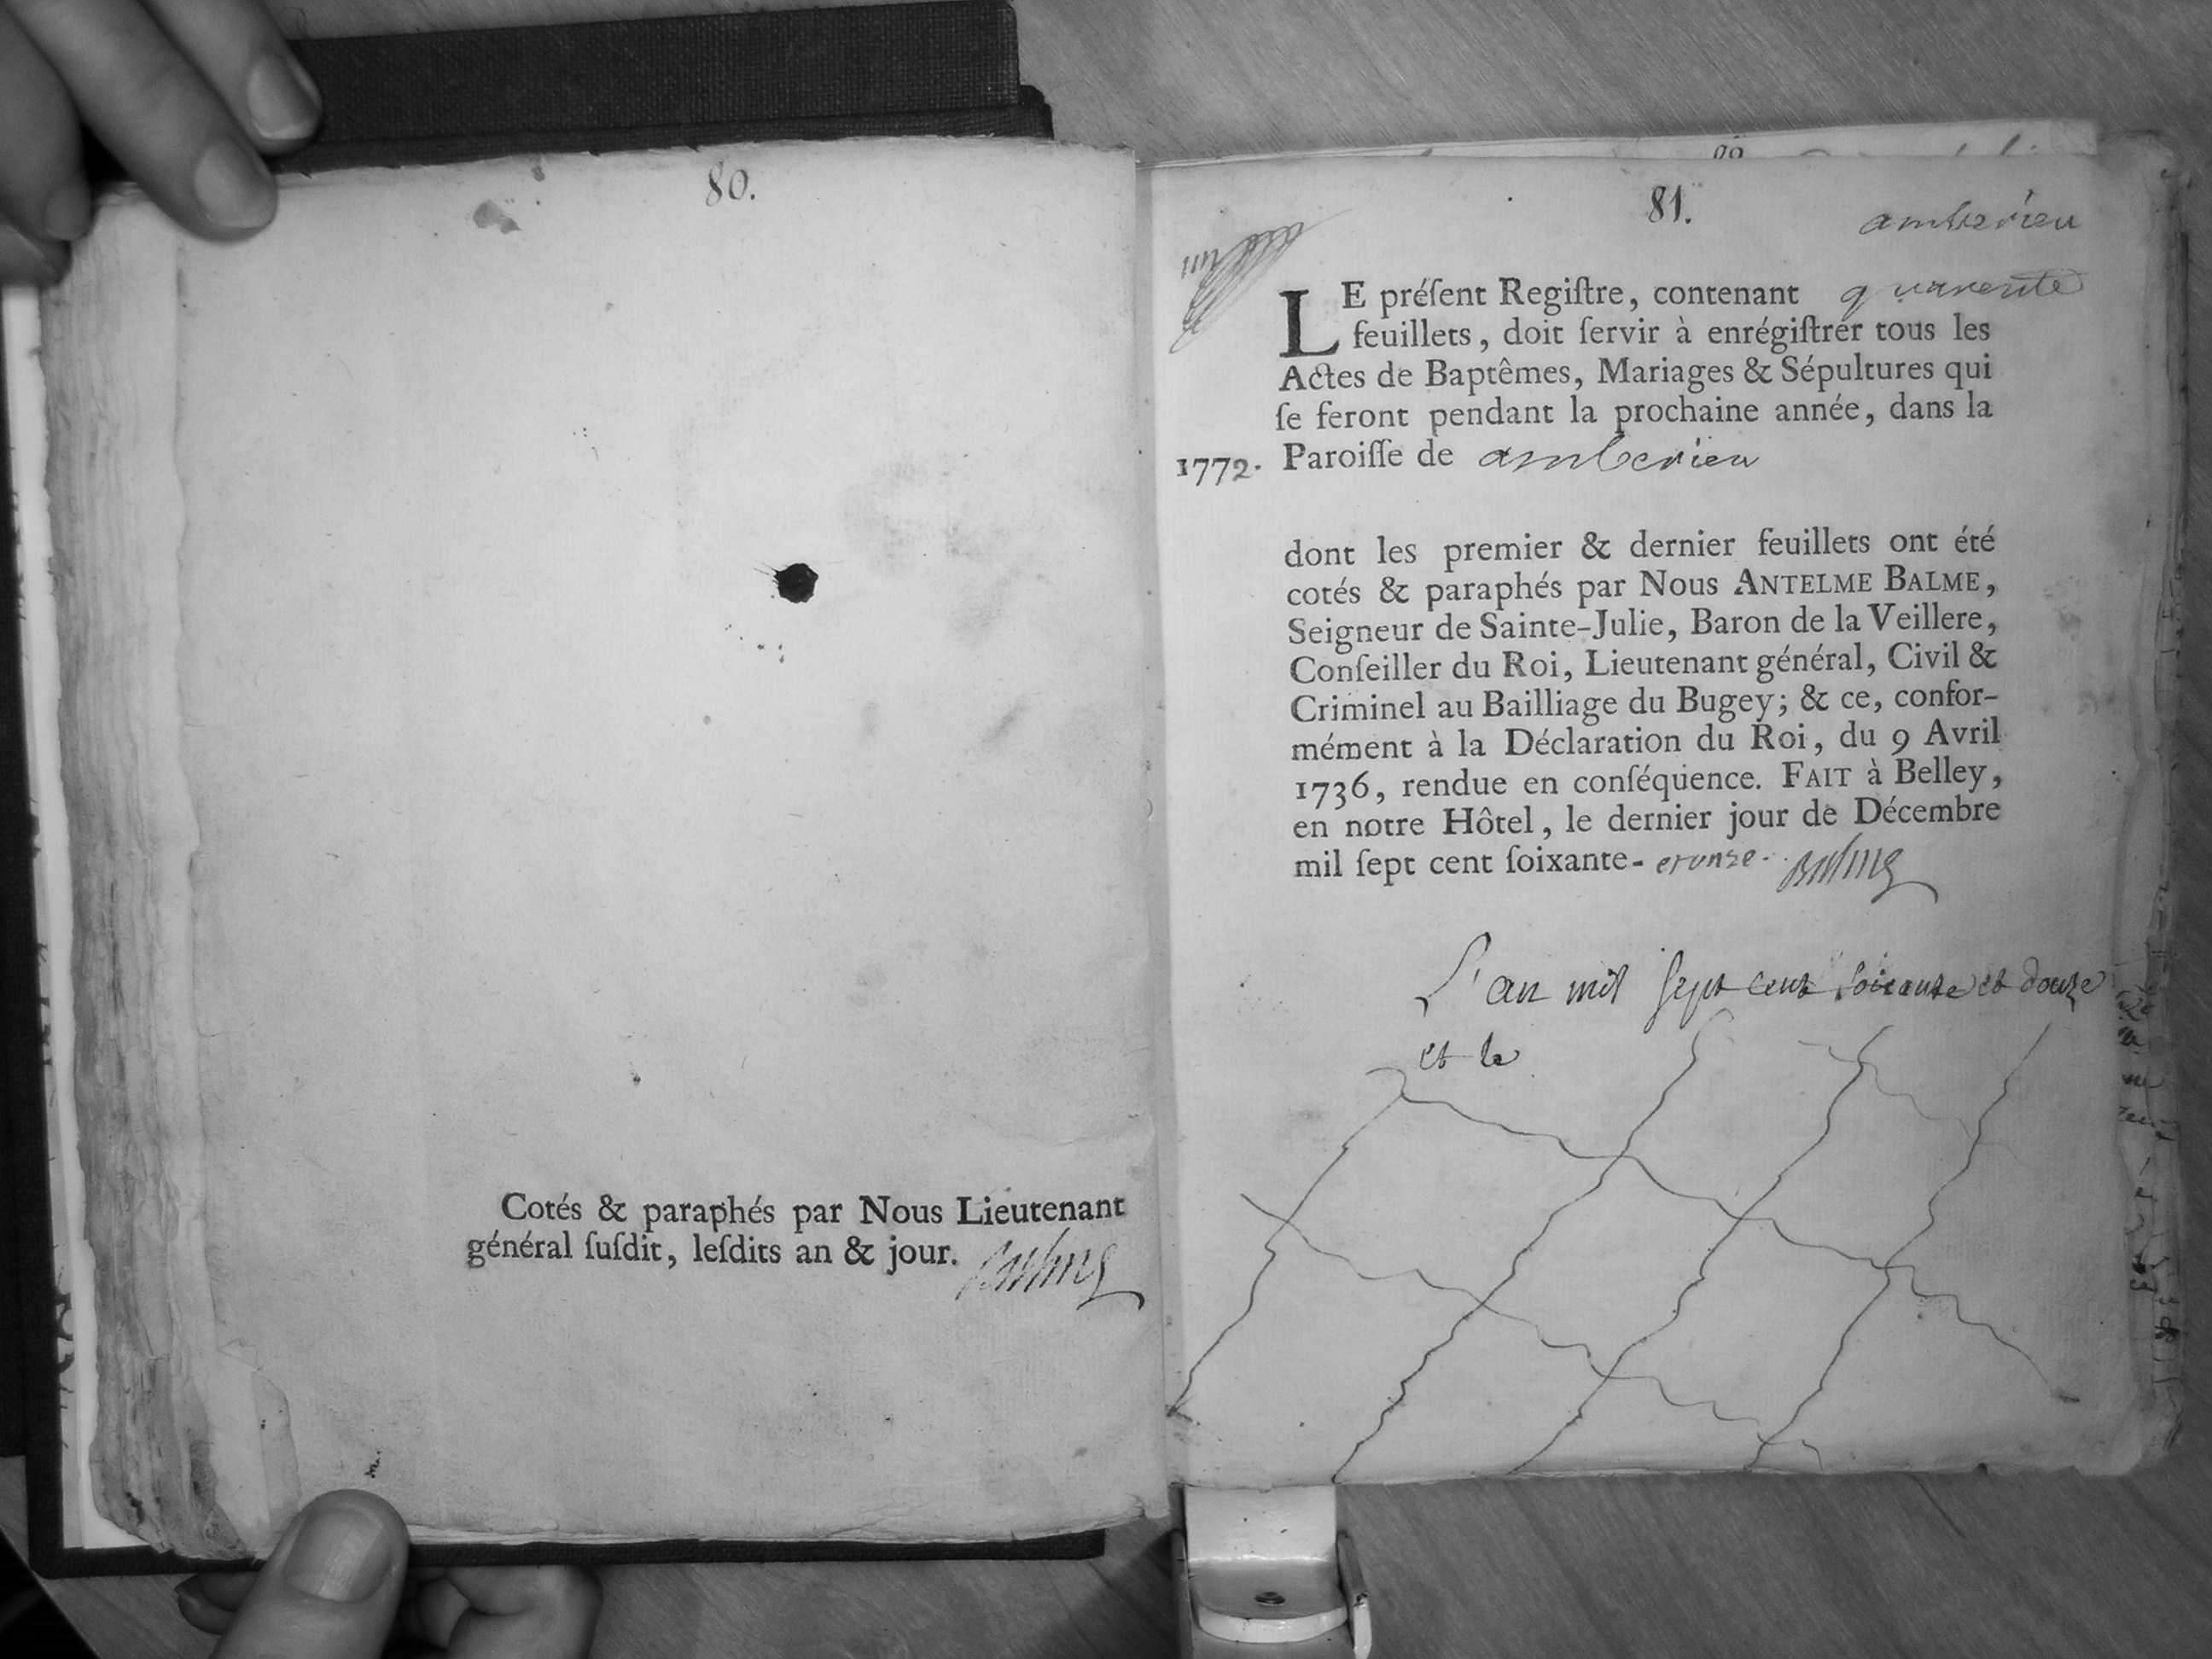 80.
Cotés & paraphés par Nous Lieutenant
général ſuſdit, leſdits an & jour. Balme
81.
amberieu
un
LE préſent Regiſtre, contenant quarente
feuillets, doit ſervir à enrégiſtrer tous les
Actes de Baptêmes, Mariages & Sépultures qui
ſe feront pendant la prochaine année, dans la
1772. Paroiſſe de amberieu
dont les premier & dernier feuillets ont été
cotés & paraphés par Nous ANTELME BALME,
Seigneur de Sainte-Julie, Baron de la Veillere,
Conſeiller du Roi, Lieutenant général, Civil &
Criminel au Bailliage du Bugey; & ce, confor-
mément à la Déclaration du Roi, du 9 Avril
1736, rendue en conſéquence. FAIT à Belley,
en notre Hôtel, le dernier jour de Décembre
mil ſept cent ſoixante- et onze. Balme
L'an mil sept cent soixante et douze
et le